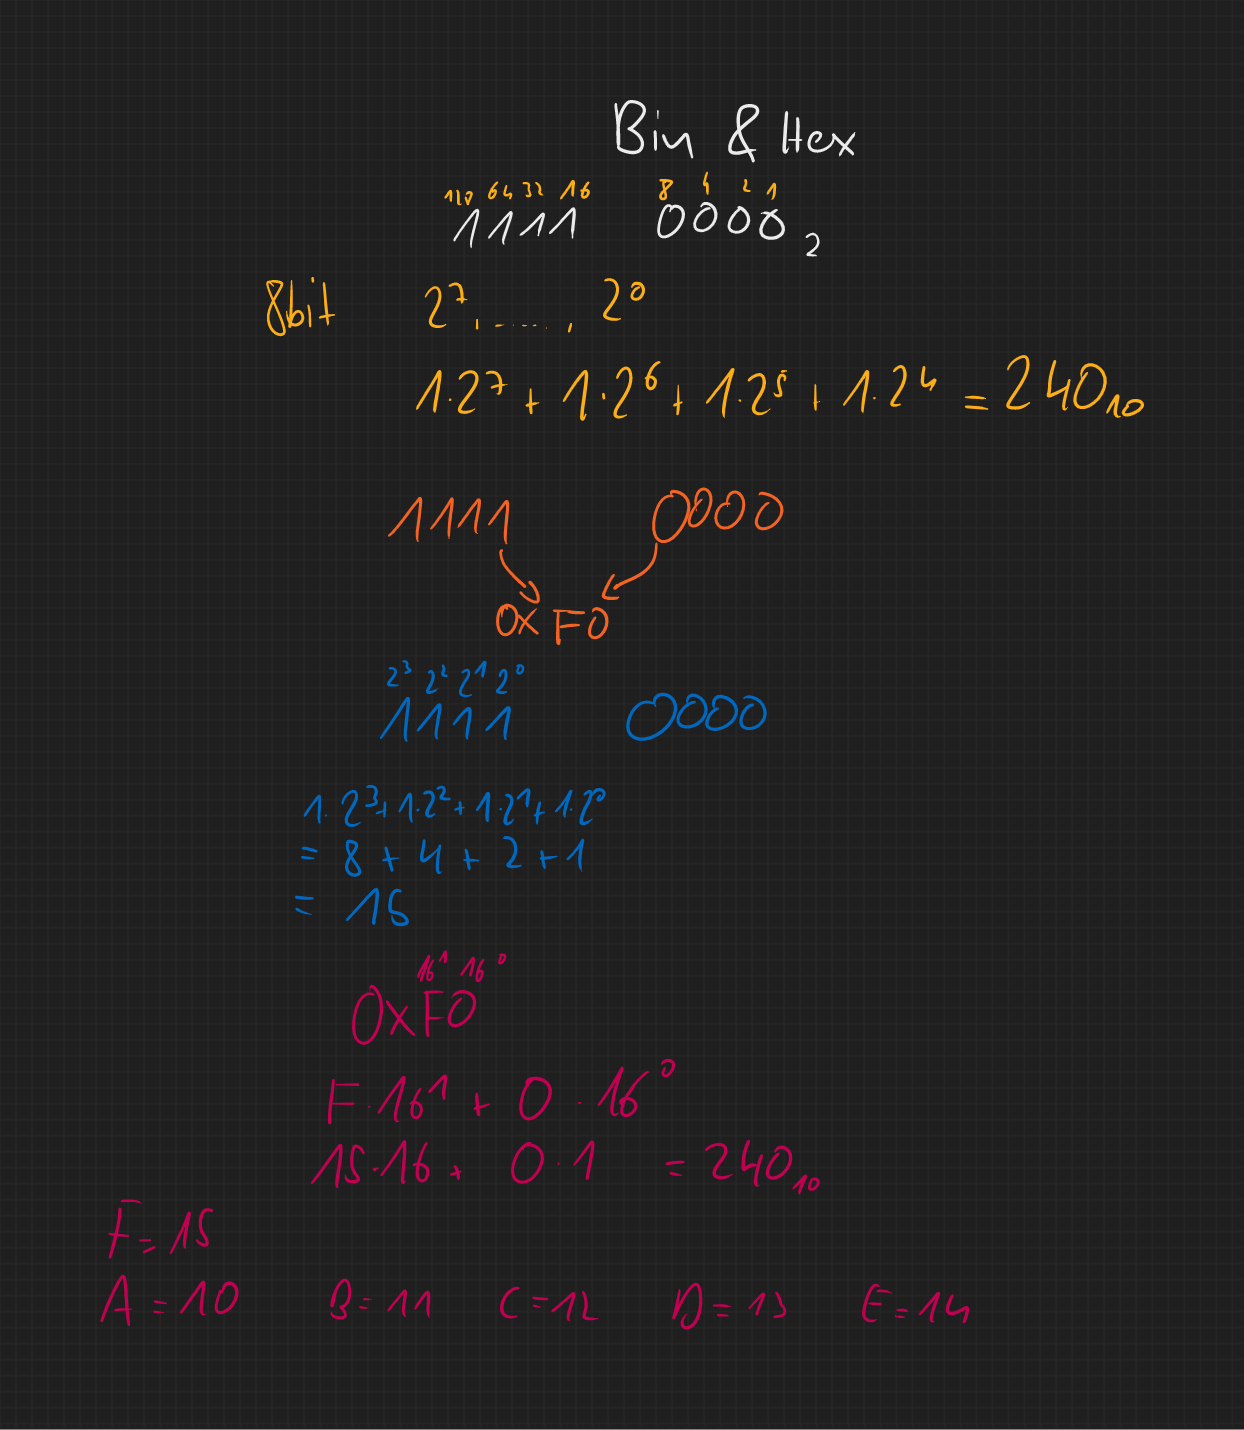 Bin & Hex
128 64 32 16 8 4 2 1
1111 0000₂
8bit 2⁷, ......, 2⁰
1·2⁷ + 1·2⁶ + 1·2⁵ + 1·2⁴ = 240₁₀
1111 0000
0xF0
2³ 2² 2¹ 2⁰
1111 0000
1·2³+1·2²+1·2¹+1·2⁰
= 8 + 4 + 2 + 1
= 16
16¹ 16⁰
0xF0
F·16¹ + 0·16⁰
15·16 + 0·1 = 240₁₀
F=15
A=10 B=11 C=12 D=13 E=14